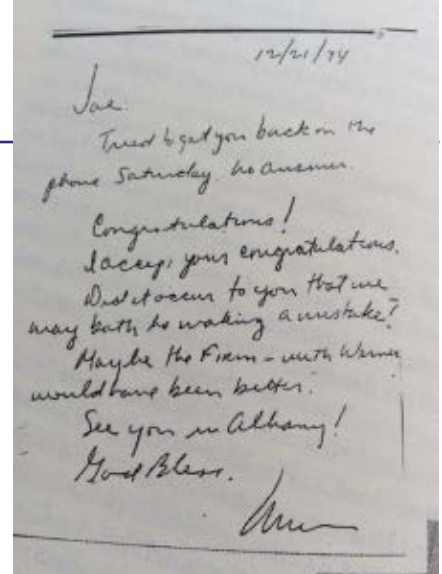 12/21/74
Joe:
Tried to get you back on the
phone Saturday. No answer.
Congratulations!
I accept your congratulations.
Did it occur to you that we
may both be making a mistake?
Maybe the Firm - with Warner
would have been better.
See you in Albany!
God Bless.